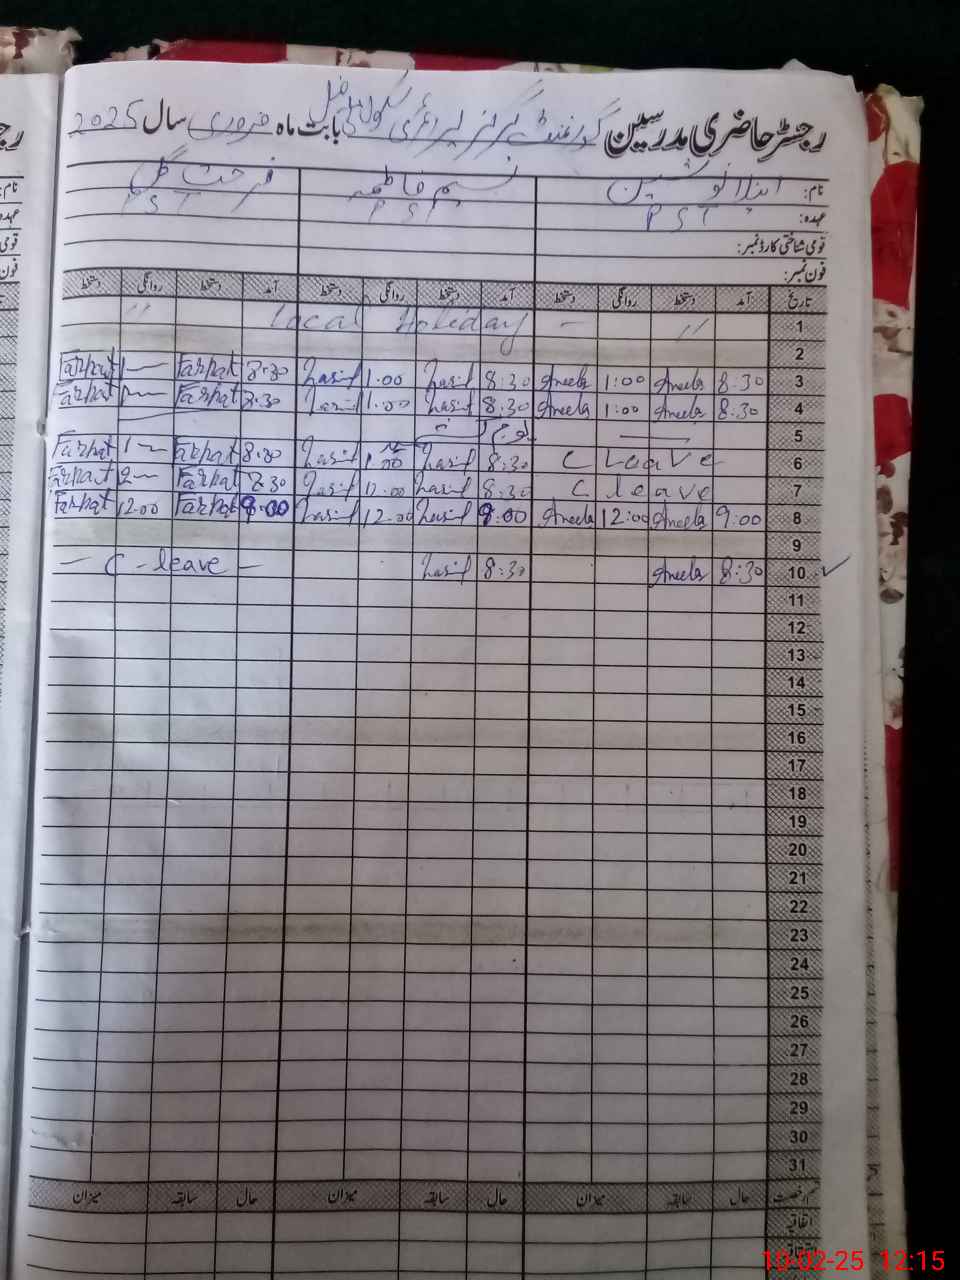 رجسٹر حاضری مدرسین گورنمنٹ گرلز پرائمری سکول بابت ماہ فروری سال 2025
نام: انیلا نوشین نسیم فاطمہ فرحت گل
عہدہ: PST PST PST
قومی شناختی کارڈ نمبر:
فون نمبر:
تاریخ آمد دستخط روانگی دستخط آمد دستخط روانگی دستخط آمد دستخط روانگی دستخط
1 〃 — Local Holiday 〃
2
3 8:30 Aneela 1:00 Aneela 8:30 Nasim 1.00 Nasim 8.30 Farhat 1— Farhat
4 8.30 Aneela 1:00 Aneela 8:30 Nasim 1.00 Nasim 8.30 Farhat 1— Farhat
5
6 C Leave 8:30 Nasim 1.00 Nasim 8:30 Farhat 1— Farhat
7 C leave 8:30 Nasim 12.00 Nasim 8.30 Farhat 12— Farhat
8 9:00 Aneela 12:00 Aneela 9:00 Nasim 12.00 Nasim 9:00 Farhat 12.00 Farhat
9
10 8:30 Aneela 8:30 Nasim — C-leave —
11
12
13
14
15
16
17
18
19
20
21
22
23
24
25
26
27
28
29
30
31
رخصت حال سابقہ میزان حال سابقہ میزان حال سابقہ میزان
اتفاقیہ
10-02-25 12:15